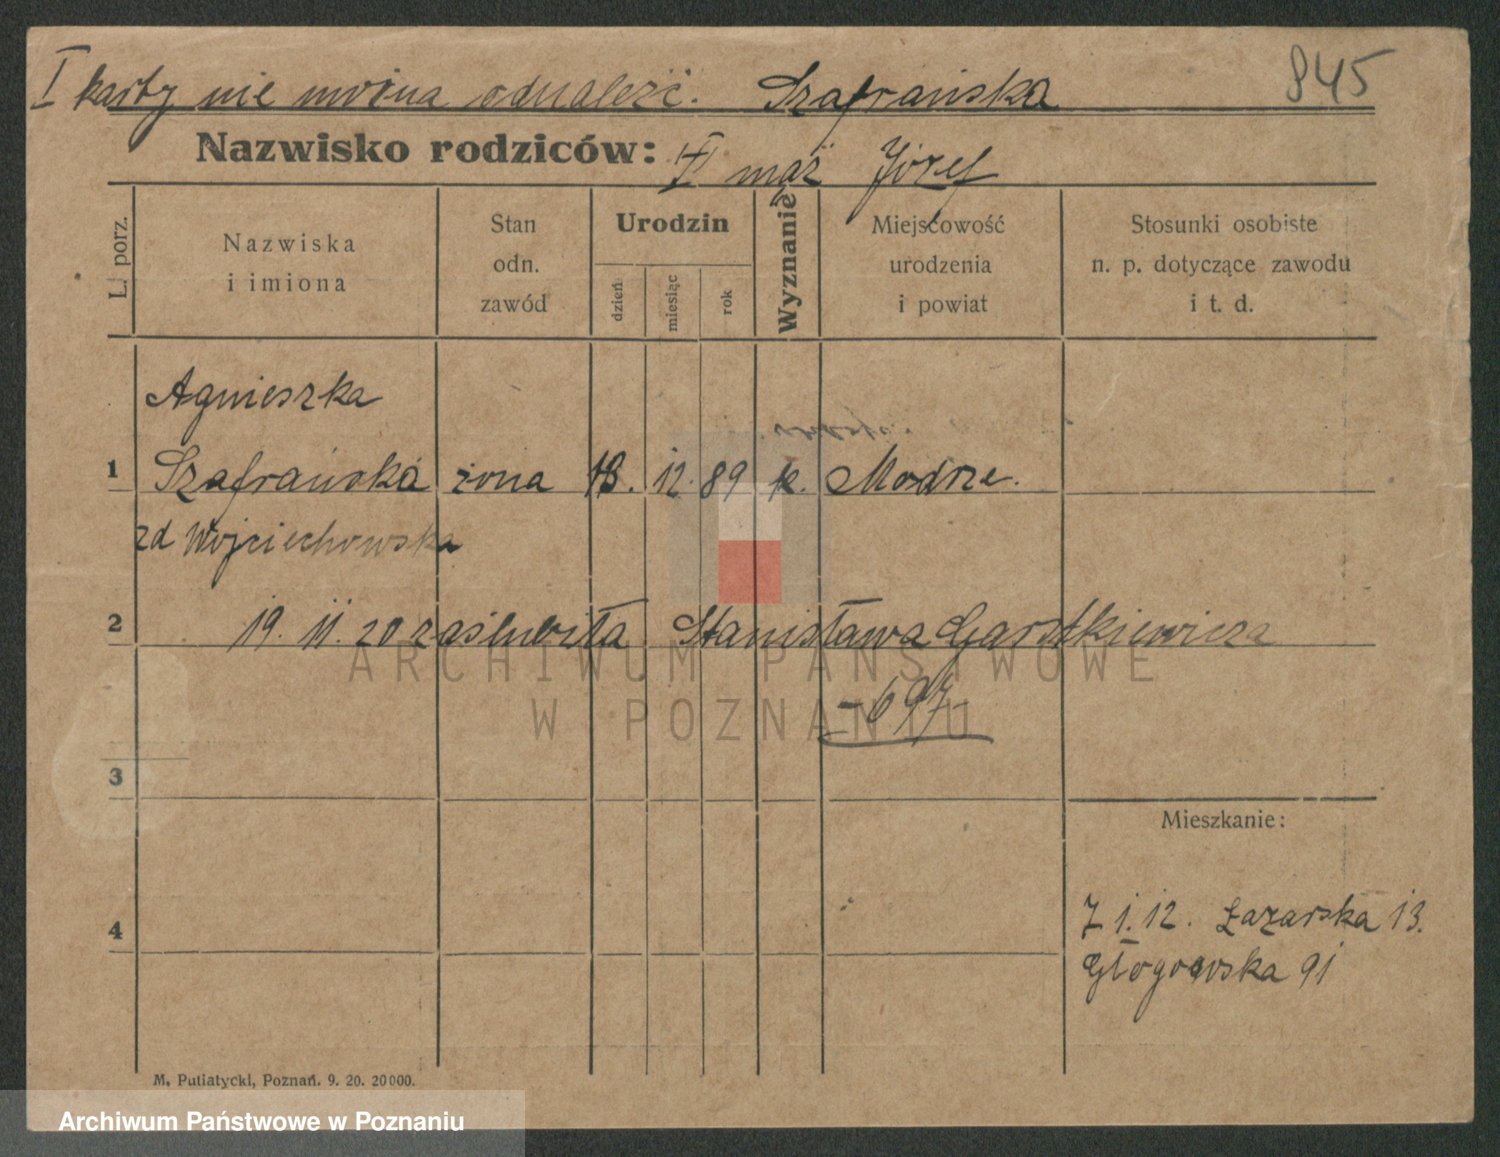 I karty nie można odnaleźć. Szafrańska 845
Nazwisko rodziców: I mąż Józef
L. porz.
Nazwiska
i imiona
Stan
odn.
zawód
Urodzin
dzień
miesiąc
rok
Wyznanie
Miejscowość
urodzenia
i powiat
Stosunki osobiste
n. p. dotyczące zawodu
i t. d.
Agnieszka
1 Szafrańska żona 18. 12. 89 k. Modrze.
zd Wojciechowska
2 19. 11. 20 zaślubiła Stanisława Garstkiewicza
ARCHIWUM PAŃSTWOWE
- 697 -
W POZNANIU
3
Mieszkanie:
4 Z 1. 12. Łazarska 13.
Głogowska 91
M. Putiatycki, Poznań. 9. 20. 20000.
Archiwum Państwowe w Poznaniu